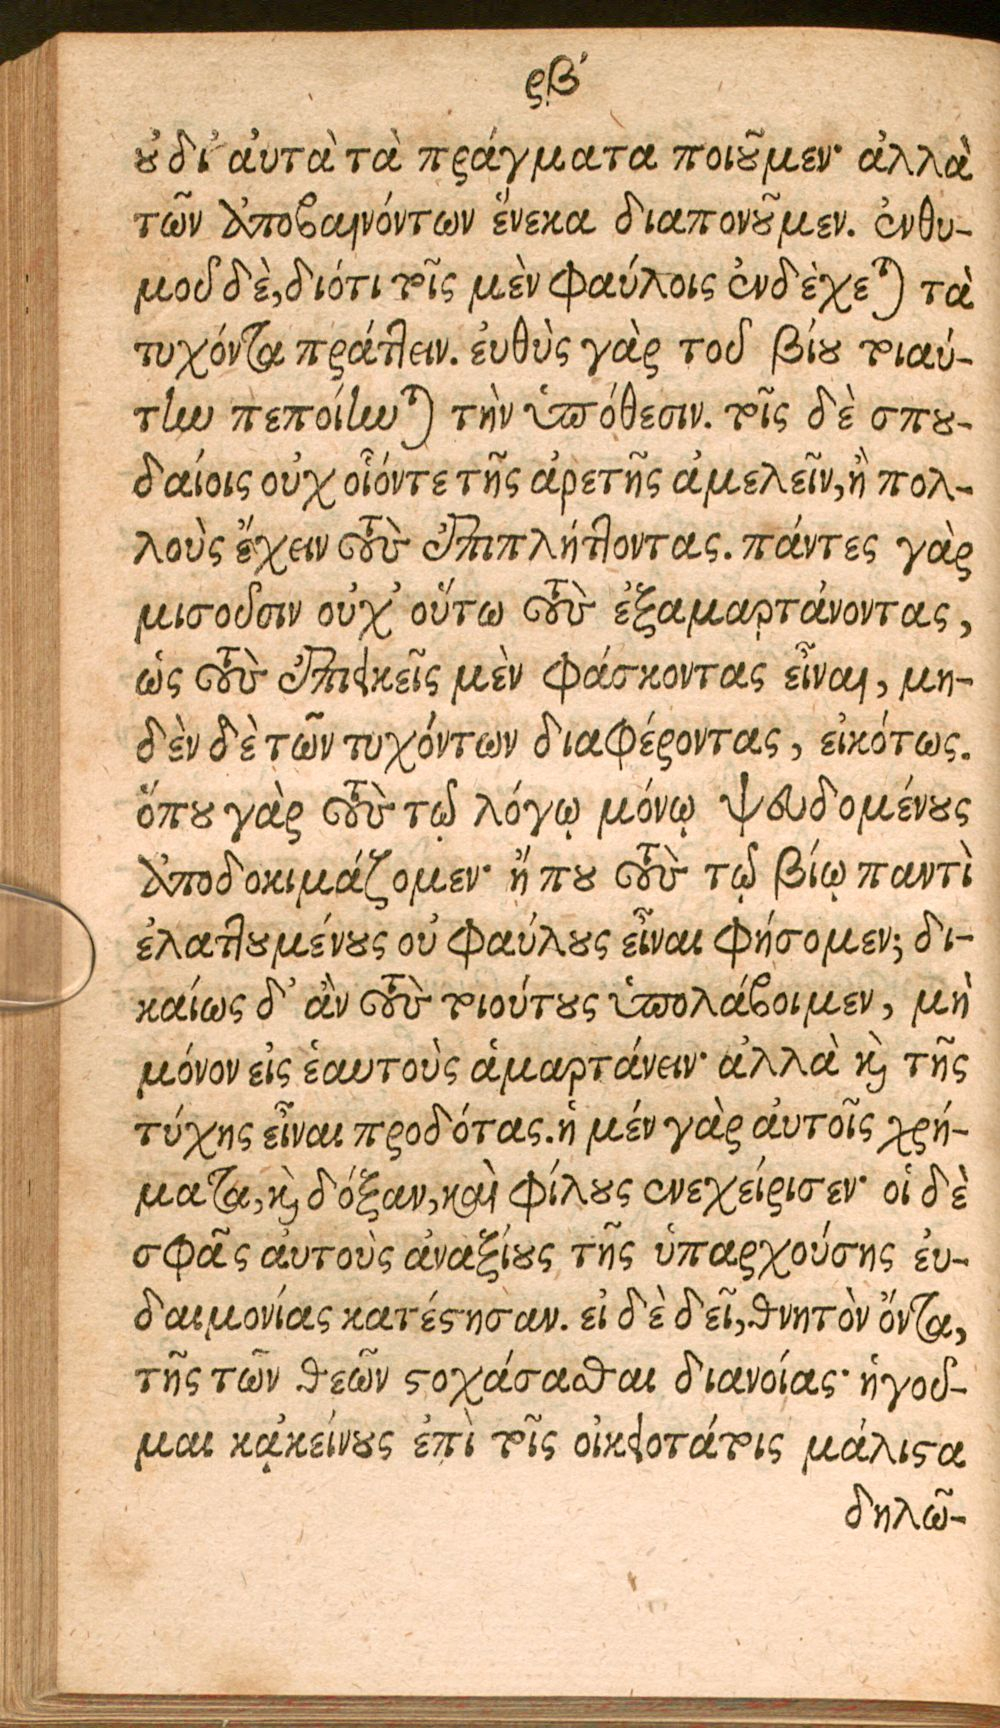 ϟβʹ
οὐ δι' αὐτὰ τὰ πράγματα ποιοῦμεν· ἀλλὰ
τῶν ἀποβαινόντων ἕνεκα διαπονοῦμεν. ἐνθυ-
μοῦ δὲ, διότι τοῖς μὲν φαύλοις ἐνδὲχεται τὰ
τυχόντα πράττειν. ἐυθὺς γὰρ τοῦ βίου τοιαύ-
την πεποίηνται τὴν ὑπόθεσιν. τοῖς δὲ σπου-
δαίοις οὐχ οἷόντε τῆς ἀρετῆς ἀμελεῖν, ἢ πολ-
λοὺς ἔχειν τοὺς ἐπιπλήττοντας. πάντες γὰρ
μισοῦσιν οὐχ' οὕτω τοὺς ἐξαμαρτάνοντας,
ὡς τοὺς ἐπιεικεῖς μὲν φάσκοντας εἶναι, μη-
δὲν δὲ τῶν τυχόντων διαφέροντας, εἰκότως.
ὅπου γὰρ τοὺς τῷ λόγῳ μόνῳ ψευδομένους
ἀποδοκιμάζομεν· ἤ που τοὺς τῷ βίῳ παντὶ
ἐλαττουμένους οὐ φαύλους εἶναι φήσομεν; δι-
καίως δ' ἂν τοὺς τοιούτους ὑπολάβοιμεν, μὴ
μόνον εἰς ἑαυτοὺς ἁμαρτάνειν· ἀλλὰ καὶ τῆς
τύχης εἶναι προδότας. ἡ μέν γὰρ ἀυτοῖς χρή-
ματα, καὶ δόξαν, καὶ φίλους ἐνεχείρισεν· οἱ δὲ
σφᾶς ἀυτοὺς ἀναξίους τῆς ὑπαρχούσης ἐυ-
δαιμονίας κατέστησαν. εἰ δὲ δεῖ, θνητὸν ὄντα,
τῆς τῶν θεῶν στοχάσασθαι διανοίας· ἡγοῦ-
μαι κᾀκείνους ἐπὶ τοῖς οἰκειοτάτοις μάλιστα
δηλῶ-